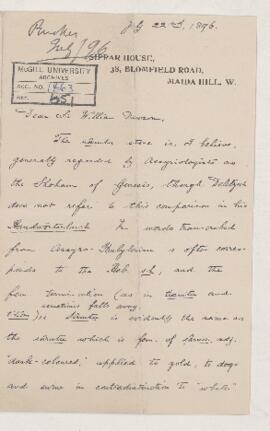 Pinches
July 22nd, 1896.
July/96
SIPPAR HOUSE,
38, BLOMFIELD ROAD,
MAIDA HILL, W.
McGILL UNIVERSITY
ARCHIVES
ACC. NO. 1463
REF.
Dear Sir William Dawson,
The sâmtu stone is, I believe,
generally regarded by Assyriologists as
the Shoham of Genesis, though Delitzsch
does not refer to this comparison in his
Handwörterbuch. In words transcribed
from Assyro-Babylonian s often corres-
ponds to the Heb. sh, and the
fem. termination (as in tiamtu and
sometimes falls away.
tâmtu) Sâmtu is evidently the same as
the sâmtu which is fem. of sâmu, adj.
"dark-coloured," applied to gold, to dogs
and swine in contradistinction to "white"